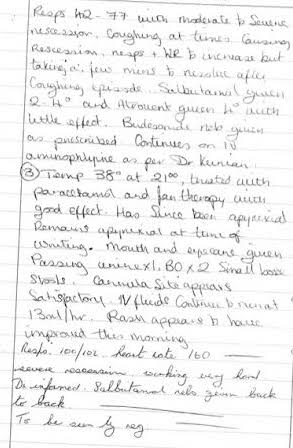 Resps 42 - 77 with moderate to severe
recession. Coughing at times causing
Rescession, resps + HR to increase but
taking a few mins to resolve after
Coughing episode. Salbutamol given
2-4° and Atrovent given 4° with
little effect. Budesonide neb given
as prescribed. Continues on IV
aminophlyine as per Dr
③ Temp 38° at 21⁰⁰, treated with
paracetamol and fan therapy with
good effect. Has since been apyrexial
Remains apyrexial at time of
writing. Mouth and eyecare given
Passing urine x1. BO x 2 small loose
stools. Cannula site appears
Satisfactory. IV fluids continue to run at
13ml/hr. Rash appears to have
improved this morning
Resps. 100/102. heart rate 160
severe recession. working very hard
Dr informed. Salbutamol nebs given back
to back
To be seen by reg